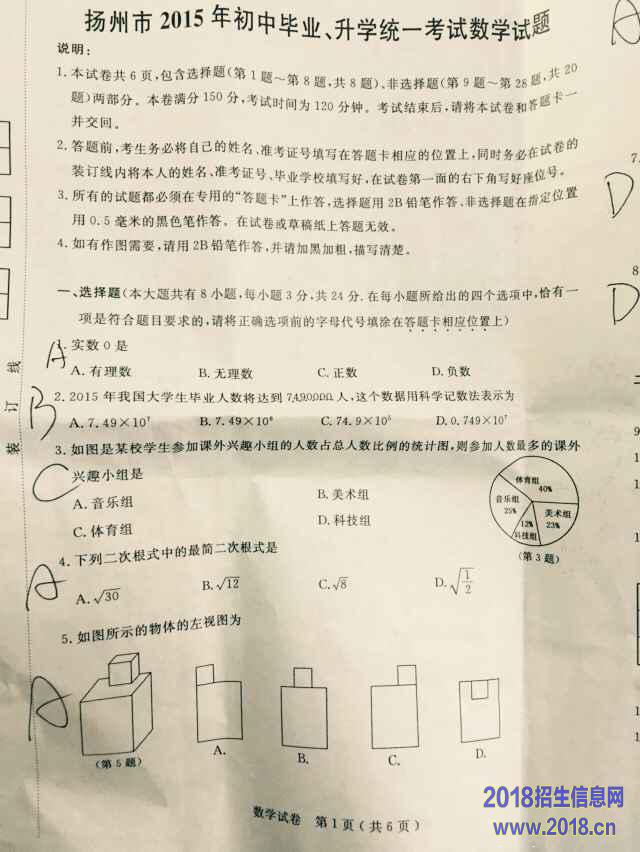 扬州市2015年初中毕业、升学统一考试数学试题
说明：
1.本试卷共6页,包含选择题(第1题～第8题,共8题)、非选择题(第9题～第28题,共20
题)两部分。本卷满分150分,考试时间为120分钟。考试结束后,请将本试卷和答题卡一
并交回。
2.答题前,考生务必将自己的姓名、准考证号填写在答题卡相应的位置上,同时务必在试卷的
装订线内将本人的姓名、准考证号、毕业学校填写好,在试卷第一面的右下角写好座位号。
3.所有的试题都必须在专用的“答题卡”上作答,选择题用2B铅笔作答、非选择题在指定位置
用0.5毫米的黑色笔作答。在试卷或草稿纸上答题无效。
4.如有作图需要,请用2B铅笔作答,并请加黑加粗,描写清楚。
一、选择题(本大题共有8小题,每小题3分,共24分.在每小题所给出的四个选项中,恰有一
项是符合题目要求的,请将正确选项前的字母代号填涂在答题卡相应位置上)
A 1.实数0是
A.有理数 B.无理数 C.正数 D.负数
B 2.2015年我国大学生毕业人数将达到7,490,000人,这个数据用科学记数法表示为
A.7.49×10⁷ B.7.49×10⁶ C.74.9×10⁵ D.0.749×10⁷
C 3.如图是某校学生参加课外兴趣小组的人数占总人数比例的统计图,则参加人数最多的课外
兴趣小组是
A.音乐组 B.美术组
C.体育组 D.科技组
体育组
40%
音乐组
25%
美术组
23%
12%
科技组
(第3题)
A 4.下列二次根式中的最简二次根式是
A.√30 B.√12 C.√8 D.√(1/2)
A 5.如图所示的物体的左视图为
(第5题) A. B. C. D.
数学试卷 第1页(共6页)
线
订
装
A
7.
D
8
D
2018招生信息网
www.2018.cn